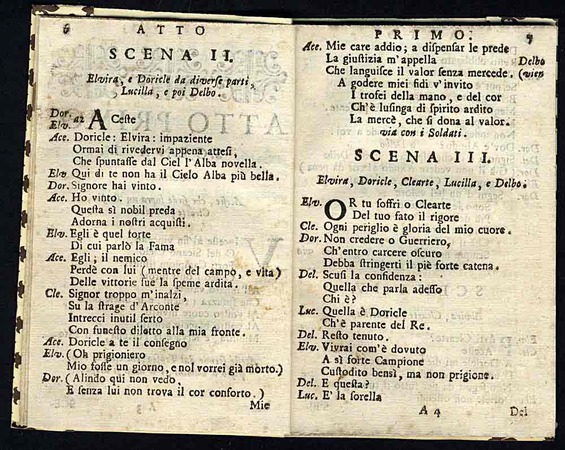 6 ATTO
SCENA II.
Elvira, e Doricle da diverse parti,
Lucilla, e poi Delbo.
Dor.
Elv. a2 ACeste
Ace. Doricle: Elvira: impaziente
Ormai di rivedervi appena attesi,
Che spuntasse dal Ciel l'Alba novella.
Elv Qui di te non ha il Cielo Alba più bella.
Dor. Signore hai vinto.
Ace. Ho vinto.
Questa sì nobil preda
Adorna i nostri acquisti.
Elv. Egli è quel forte
Di cui parlò la Fama
Ace. Egli; il nemico
Perdè con lui (mentre del campo, e vita)
Delle vittorie sue la speme ardita.
Cle. Signor troppo m'inalzi,
Su la strage d'Arconte
Intrecci inutil serto
Con funesto diletto alla mia fronte.
Ace. Doricle a te il consegno
Elv. (Oh prigioniero
Mio fosse un giorno, e nol vorrei già morto.)
Dor. (Alindo qui non vedo,
E senza lui non trova il cor conforto.)
Mie
PRIMO. 7
Ace. Mie care addio; a dispensar le prede
La giustizia m'appella Delbo
Che languisce il valor senza mercede. (vien
A godere miei fidi v'invito
I trofei della mano, e del cor
Ch'è lusinga di spirito ardito
La mercè, che si dona al valor.
via con i Soldati.
SCENA III.
Elvira, Doricle, Clearte, Lucilla, e Delbo.
Elv. OR tu soffri o Clearte
Del tuo fato il rigore
Cle. Ogni periglio è gloria del mio cuore.
Dor. Non credere o Guerriero,
Ch'entro carcere oscuro
Debba stringerti il piè forte catena.
Del. Scusi la confidenza:
Quella che parla adesso
Chi è?
Luc. Quella è Doricle
Ch'è parente del Re.
Del. Resto tenuto.
Elv. Vivrai com'è dovuto
A sì forte Campione
Custodito bensì, ma non prigione.
Del. E questa?
Luc. E' la sorella
A 4 Del